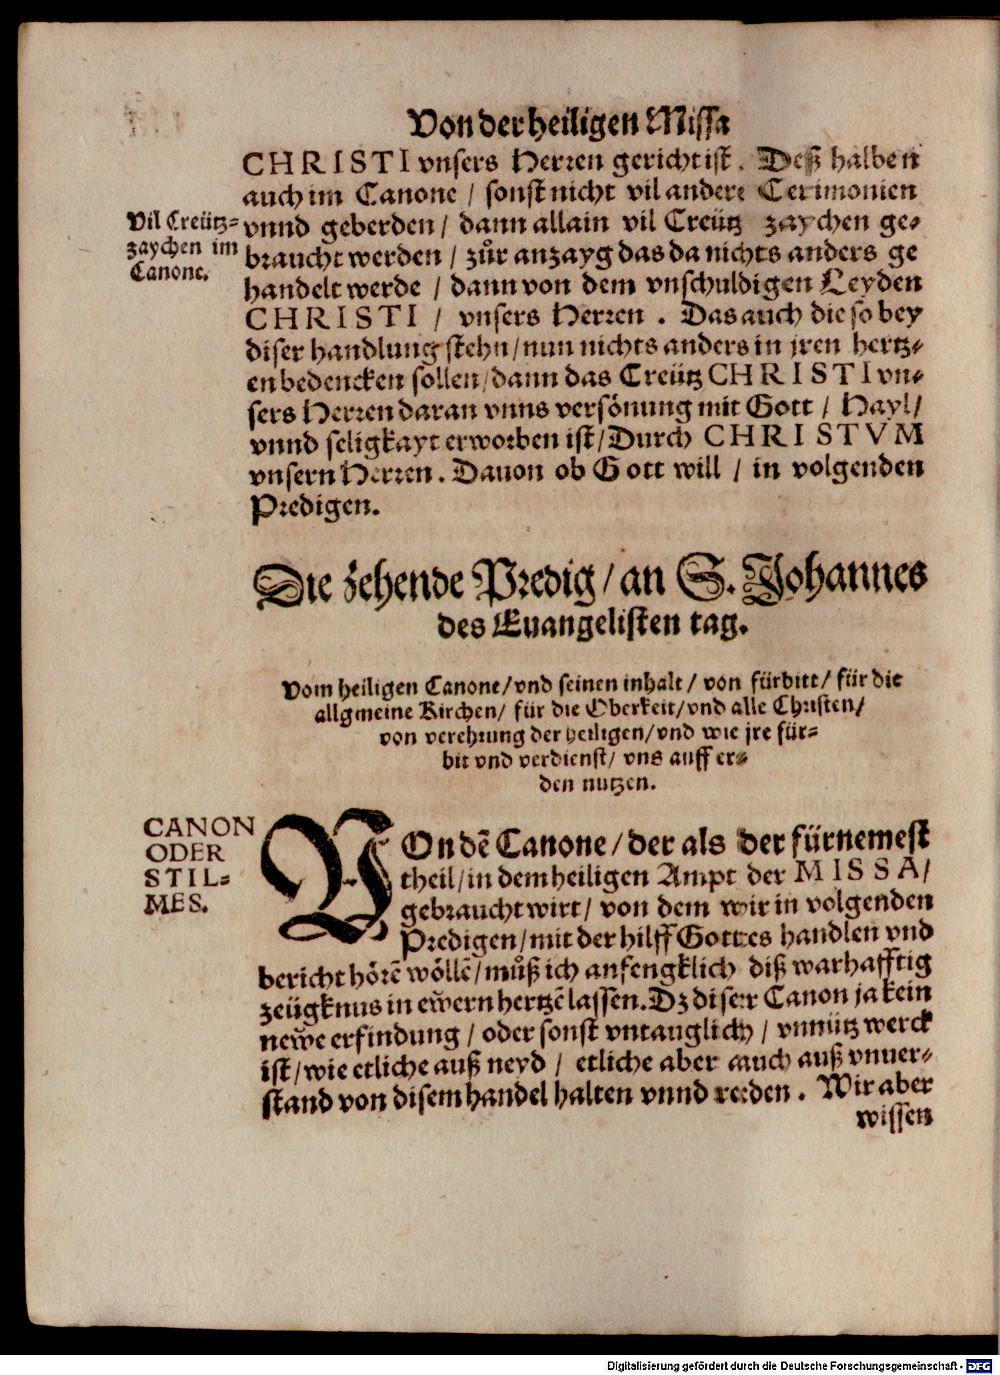 Von der heiligen Missa
CHRISTI vnsers Herren gericht ist. Deß halben
auch im Canone / sonst nicht vil andere Cerimonien
Vil Creütz-
zaychen im
Canone.
vnnd geberden / dann allain vil Creütz zaychen ge-
braucht werden / zůr anzayg das da nichts anders ge
handelt werde / dann von dem vnschuldigen Leyden
CHRISTI / vnsers Herren . Das auch die so bey
diser handlung stehn / nun nichts anders in jren hertz-
en bedencken sollen / dann das Creütz CHRISTI vn-
sers Herren daran vnns versönung mit Gott / Hayl /
vnnd seligkayt erworben ist / Durch CHRISTVM
vnsern Herren . Dauon ob Gott will / in volgenden
Predigen.
Die zehende Predig / an S. Johannes
des Euangelisten tag.
Vom heiligen Canone / vnd seinen inhalt / von fürbitt / für die
allgmeine Kirchen / für die Oberkeit / vnd alle Christen /
von verehrung der heiligen / vnd wie jre für-
bit vnd verdienst / vns auff er-
den nutzen.
CANON
ODER
STIL-
MES.
VOn dẽ Canone / der als der fürnemest
theil / in dem heiligen Ampt der MISSA /
gebraucht wirt / von dem wir in volgenden
Predigen / mit der hilff Gottes handlen vnd
bericht hörẽ wöllẽ / můß ich anfengklich diß warhafftig
zeügknus in ew̃ern hertzẽ lassen. Dz diser Canon ja kein
new̃e erfindung / oder sonst vntauglich / vnnütz werck
ist / wie etliche auß neyd / etliche aber auch auß vnuer-
stand von disem handel halten vnnd reden . Wir aber
wissen
Digitalisierung gefördert durch die Deutsche Forschungsgemeinschaft - DFG